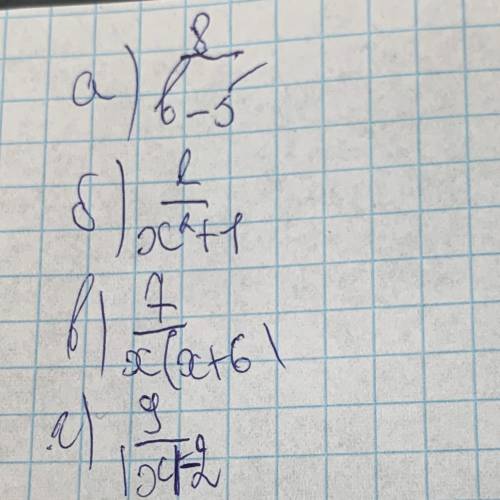 а) 8/(b-5)
б) 2/(x²+1)
в) 7/(x(x+6))
г) 9/(|x|-2)